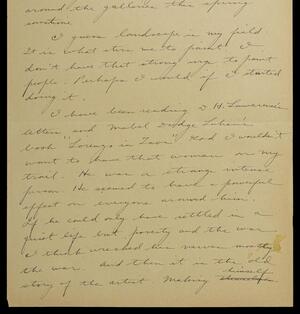 around the galleries this spring
sometime.
I guess landscape is my field
It is what stirs me to paint. I
don't have that strong urge to paint
people. Perhaps I would if I started
doing it.
I have been reading D. H. Lawrence's
letters and Mabel Dodge Luhan's
book "Lorenzo in Taos". God I wouldn't
want to have that woman on my
trail. He was a strange intense
person. He seemed to have a powerful
effect on everyone around him.
If he could only have settled in a
quiet life but poverty and the war
I think wrecked his nerves mostly
the war. And then it is the old
story of the artist making himself